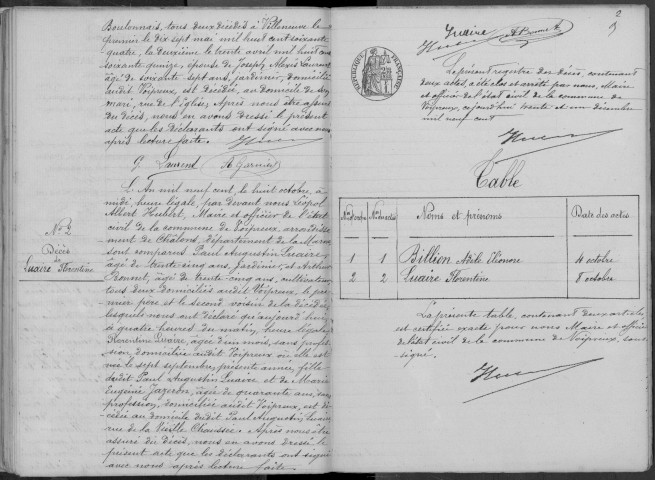 Boulonnais, tous deux décédés à Villeneuve le
premier le dix sept mai mil huit cent soixante
quatre, la deuxième le trente avril mil huit cent
soixante quinze, épouse de Joseph Alexis Laurent
âgé de soixante-sept ans, jardinier, domicilié
audit Voipreux, est décédée, au domicile de son
mari, rue de l'Église. Après nous être assuré
du décès, nous en avons dressé le présent
acte que les déclarants ont signé avec nous
après lecture faite.
G Laurent A Garnier
N° 2
Décès
de
Luaire Florentine
L'An mil neuf cent, le huit octobre, à
midi, heure légale, par devant nous Léopol
Albert Hubert, Maire et officier de l'état
civil de la commune de Voipreux, arrondisse
ment de Chalons, département de la Marne
sont comparus Paul Augustin Luaire,
âgé de trente-cinq ans, jardinier, et Arthur
Bonnet, âgé de trente-cinq ans, cultivateur
tous deux domiciliés audit Voipreux, le pre
mier père et le second voisin de la décédée
lesquels nous ont déclaré qu'aujourd'hui
à quatre heures du matin, heure légale,
Florentine Luaire, âgée d'un mois, sans profes
sion, domiciliée audit Voipreux où elle est
née le sept septembre, présente année, fille
dudit Paul Augustin Luaire et de Marie
Eugénie Jazeron, âgée de quarante ans, sans
profession, domiciliée audit Voipreux, est dé
cédée au domicile dudit Paul Augustin Luaire
rue de la Vieille Chaussée. Après nous être
assuré du décès, nous en avons dressé le
présent acte que les déclarants ont signé
avec nous après lecture faite.
2
Luaire A Bonnet
RÉPUBLIQUE FRANÇAISE
Le présent registre des décès, contenant
deux actes, a été clos et arrêté par nous, Maire
et officier de l'état civil de la commune de
Voipreux, aujourd'hui trente et un décembre
mil neuf cent
Table
Nos d'ordre Nos des actes Noms et prénoms Date des actes
1 1 Billion Adèle Eléonore 4 octobre
2 2 Luaire Florentine 8 octobre
La présente table, contenant deux articles
est certifiée exacte par nous Maire et officier
de l'état civil de la commune de Voipreux, sous-
signé.